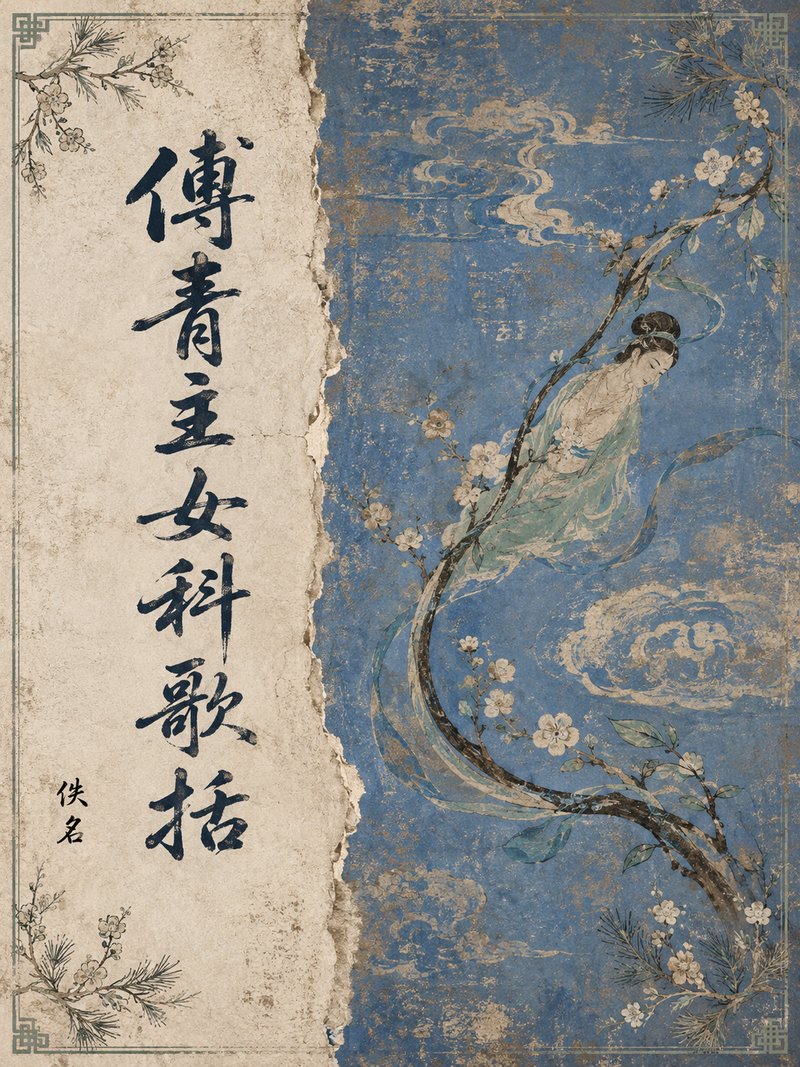 傅青主女科歌括
佚名